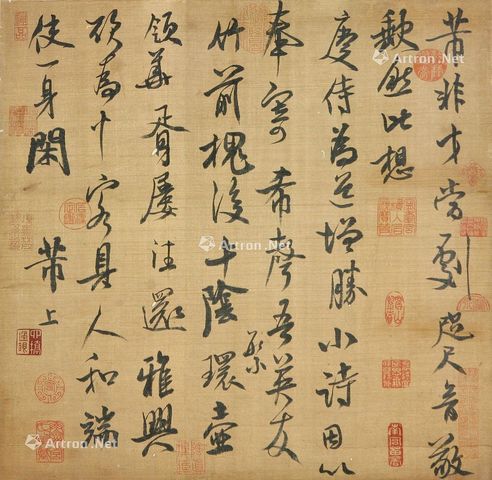 芾非才當劇咫尺音敬
歉然比想
慶侍為道增勝小詩因以
奉寄希聲吾英友
芾
竹前槐後午陰環壺
領華胥屢往還雅興
欲為十客具人和端
使一身閑
芾上
Artron.Net